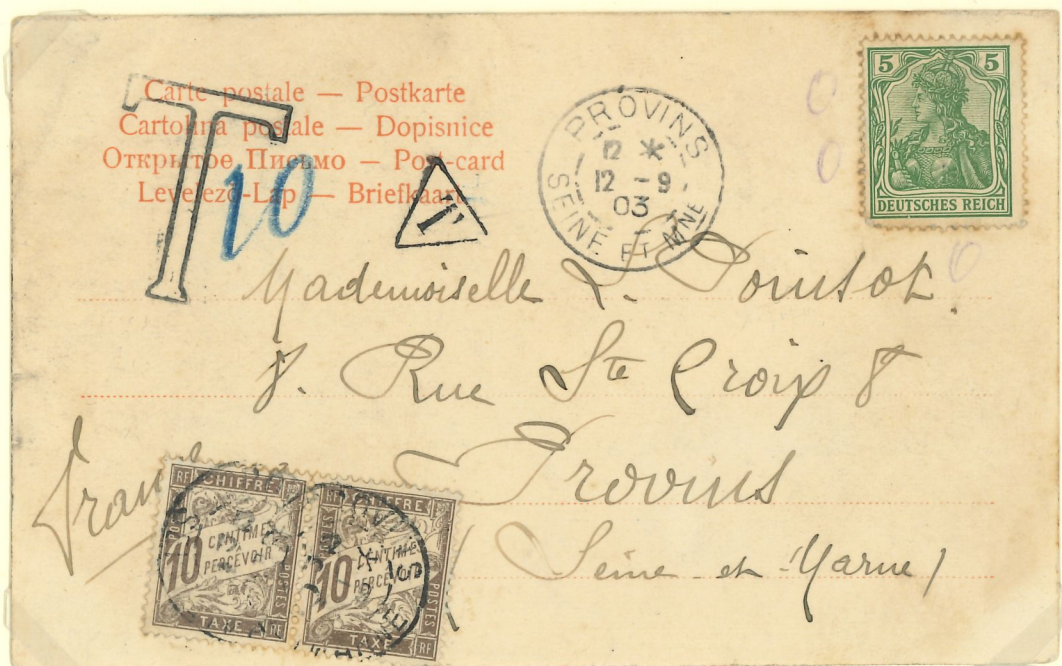 Carte postale — Postkarte
Cartolina postale — Dopisnice
Открытое Письмо — Post-card
Levelező-Lap — Briefkaart
T
10
T
PROVINS
12 *
12 - 9
03
SEINE ET MNE
5 5
DEUTSCHES REICH
Mademoiselle L. Pointot
8. Rue Ste Croix 8
Provins
Seine-et-Marne
RF CHIFFRE
POSTES
10 CENTIMES
A
PERCEVOIR
POSTES
TAXE RF
CHIFFRE RF
POSTES
10 CENTIMES
A
PERCEVOIR
POSTES
TAXE RF